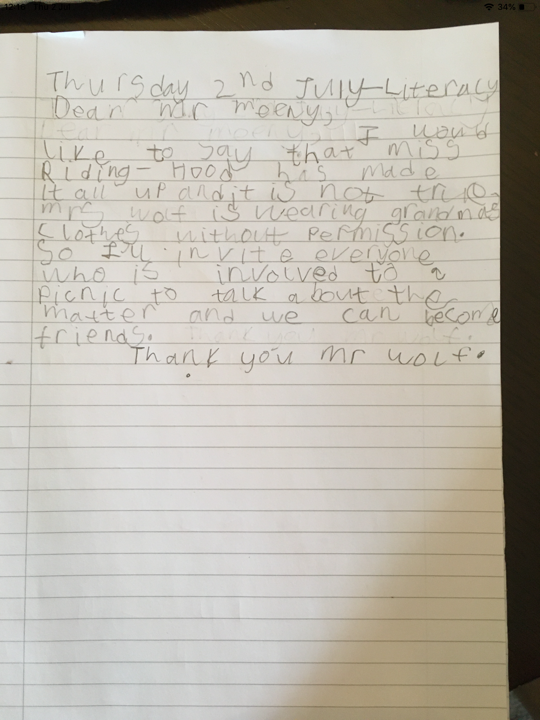 Thursday 2nd July-Literacy
Dear Mr moeny,
I would
like to say that miss
Riding-Hood has made
it all up and it is not true
mrs wolf is wearing grandmas
clothes without permission.
So I'll invite everyone
who is involved to a
picnic to talk about the
matter and we can become
friends.
Thank you Mr wolf.
34%